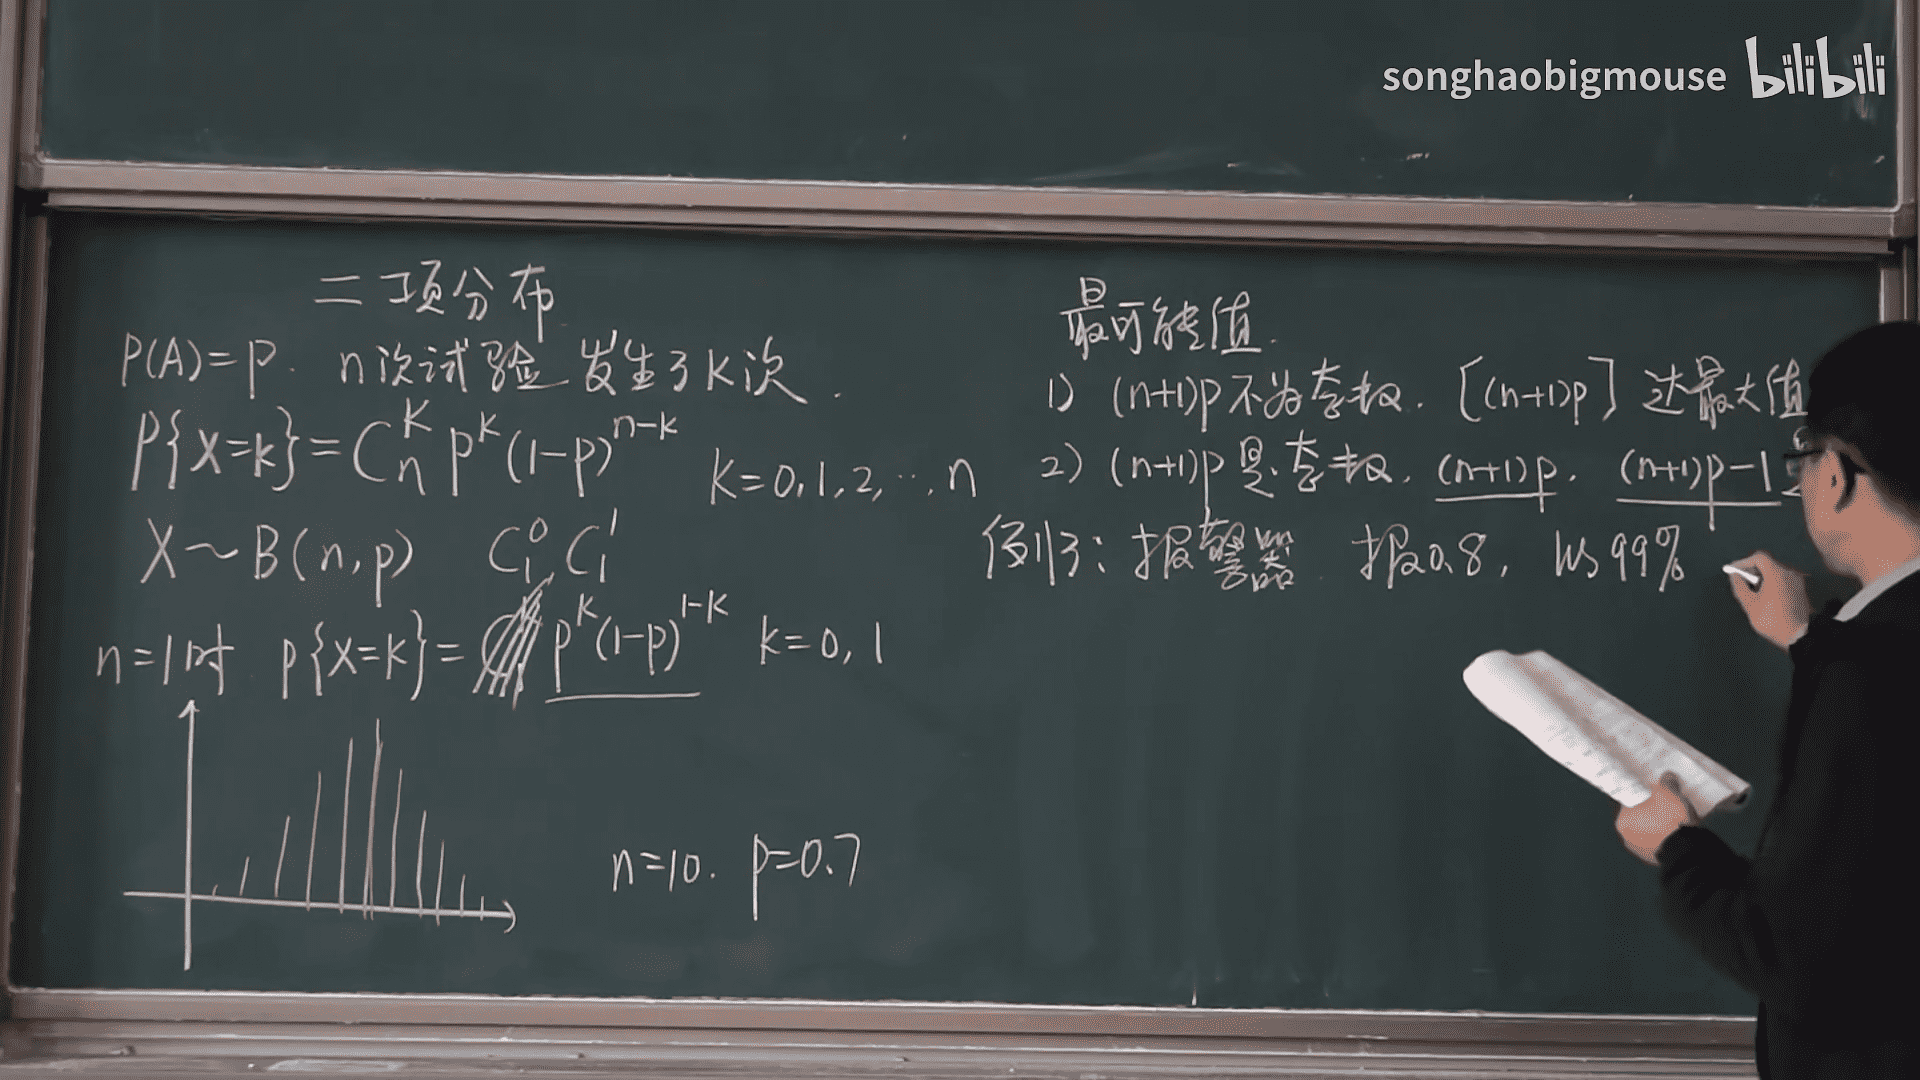 songhaobigmouse bilibili
二项分布
P(A)=P. n次试验 发生了k次.
P{X=k}=Cₙᵏ pᵏ(1-p)ⁿ⁻ᵏ k=0,1,2,…,n
X~B(n,p) C₁⁰ C₁¹
n=1时 P{X=k}= pᵏ(1-p)¹⁻ᵏ k=0,1
n=10. p=0.7
最可能值.
1) (n+1)p不为整数. [(n+1)p] 达最大值
2) (n+1)p是整数. (n+1)p. (n+1)p-1
例3: 报警器. 报0.8, 以99%